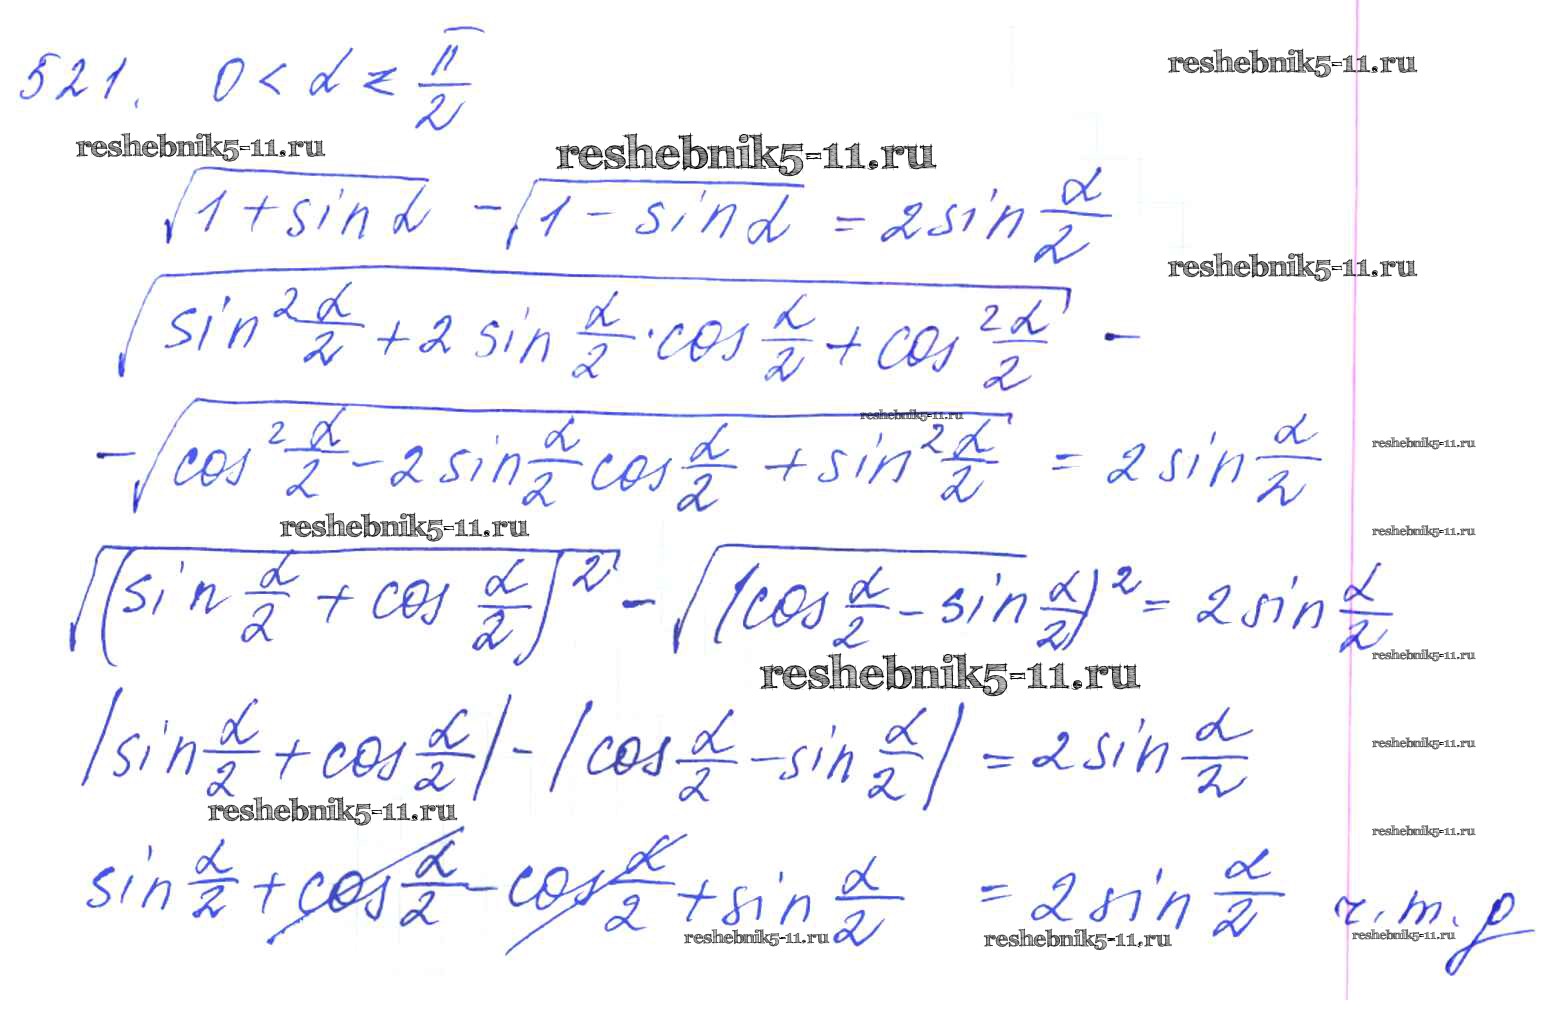 521. 0 < α < π/2
reshebnik5-11.ru
reshebnik5-11.ru
reshebnik5-11.ru
√(1 + sin α) - √(1 - sin α) = 2 sin α/2
reshebnik5-11.ru
√(sin² α/2 + 2 sin α/2 · cos α/2 + cos² α/2) -
reshebnik5-11.ru
- √(cos² α/2 - 2 sin α/2 cos α/2 + sin² α/2) = 2 sin α/2
reshebnik5-11.ru
reshebnik5-11.ru
reshebnik5-11.ru
√((sin α/2 + cos α/2)²) - √((cos α/2 - sin α/2)²) = 2 sin α/2
reshebnik5-11.ru
reshebnik5-11.ru
|sin α/2 + cos α/2| - |cos α/2 - sin α/2| = 2 sin α/2
reshebnik5-11.ru
reshebnik5-11.ru
reshebnik5-11.ru
sin α/2 + cos α/2 - cos α/2 + sin α/2 = 2 sin α/2 ч.т.д
reshebnik5-11.ru
reshebnik5-11.ru
reshebnik5-11.ru